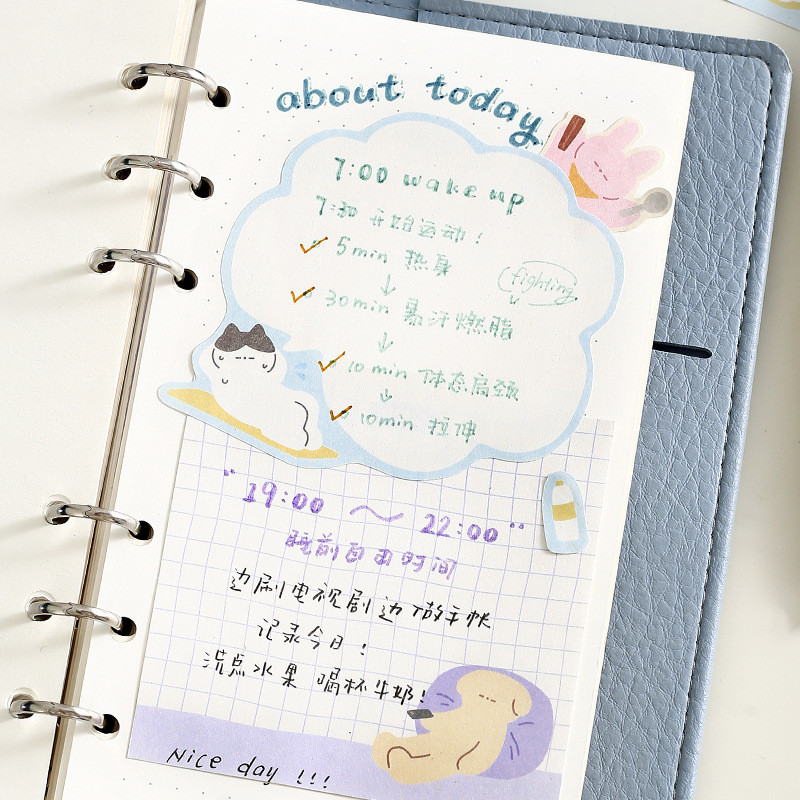 about today
7:00 wake up
7:30 开始运动!
5min 热身
↓
fighting
30min 暴汗燃脂
↓
10min 体态肩颈
↓
10min 拉伸
"19:00 ~ 22:00"
睡前自由时间
边刷电视剧边做手帐
记录今日!
洗点水果 喝杯牛奶!
Nice day !!!